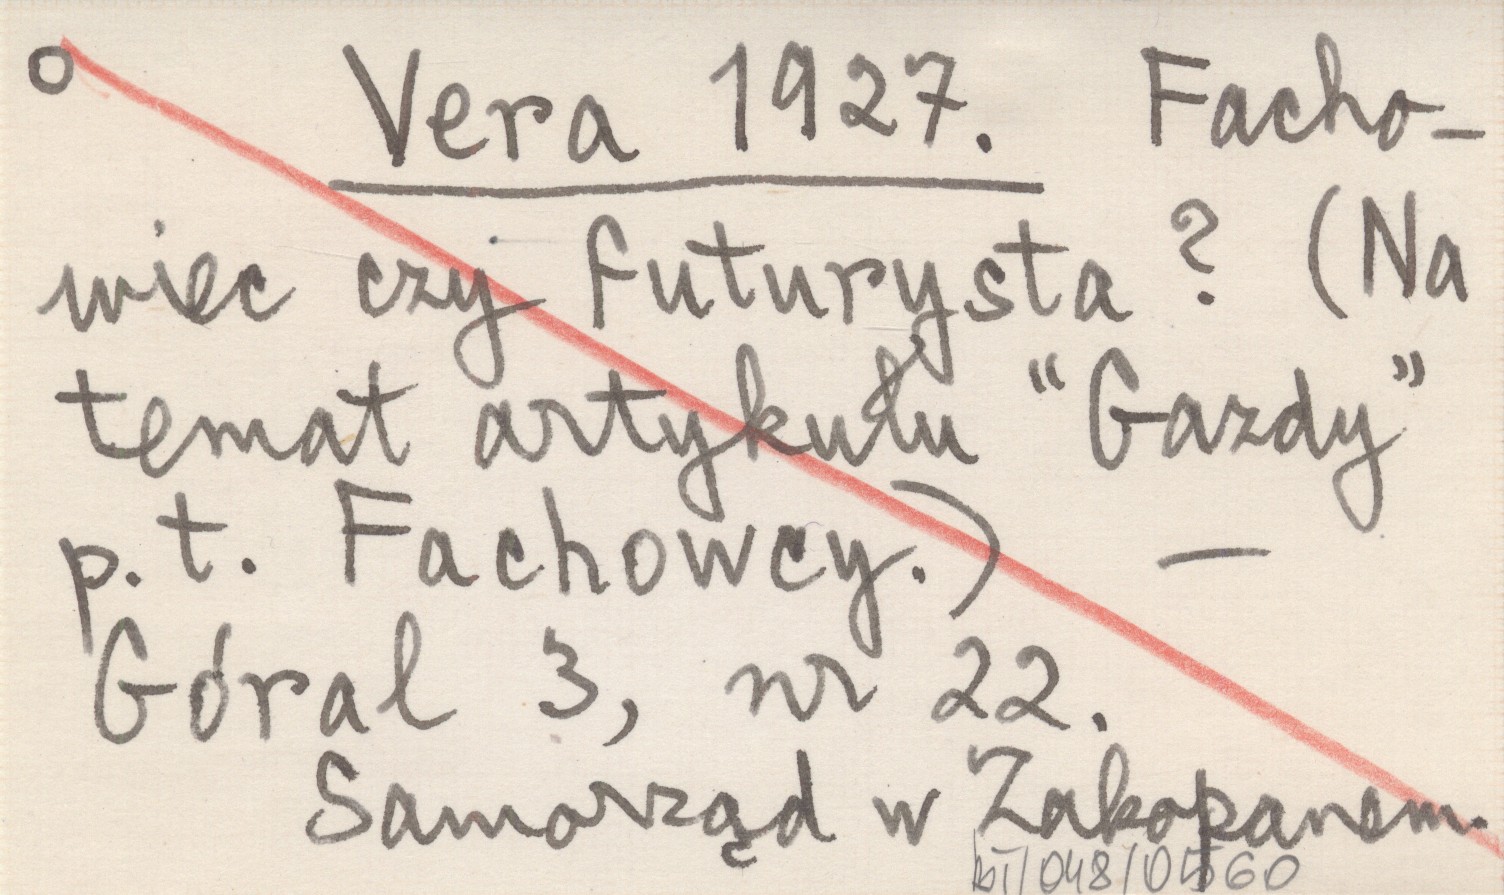 o Vera 1927. Facho-
wiec czy futurysta? (Na
temat artykułu "Gazdy"
p.t. Fachowcy.) —
Góral 3, nr 22.
Samorząd w Zakopanem.
bT/048/0560